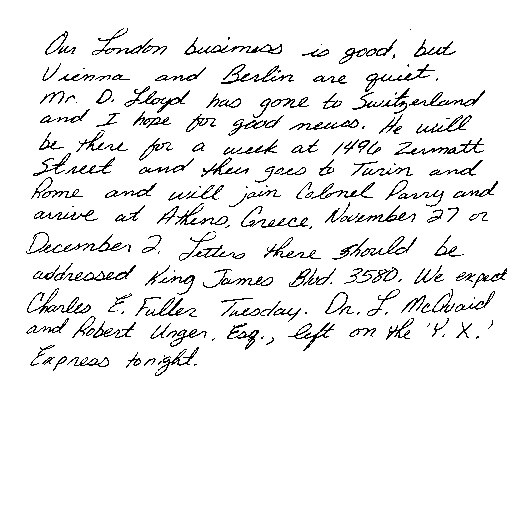 Our London business is good, but
Vienna and Berlin are quiet.
Mr. D. Lloyd has gone to Switzerland
and I hope for good news. He will
be there for a week at 1496 Zermatt
Street and then goes to Turin and
Rome and will join Colonel Parry and
arrive at Athens, Greece, November 27 or
December 2. Letters there should be
addressed King James Blvd. 3580. We expect
Charles E. Fuller Tuesday. Dr. L. McQuaid
and Robert Unger, Esq., left on the 'Y. X.'
Express tonight.